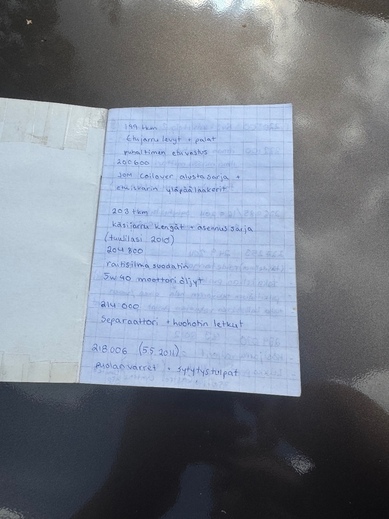 199 tkm
Etujarru levyt + palat
puhaltimen etuvastus
200600
JOM coilover alustasarja +
etuiskarin yläpäälaakerit
203 tkm
käsijarru kengät + asennus sarja
(tuulilasi 2010)
204 800
raitisilma suodatin
5w40 moottori öljyt
214 000
Separaattori + huohotin letkut
218.006 (5.5.2011)
puolan varret + sytytystulpat